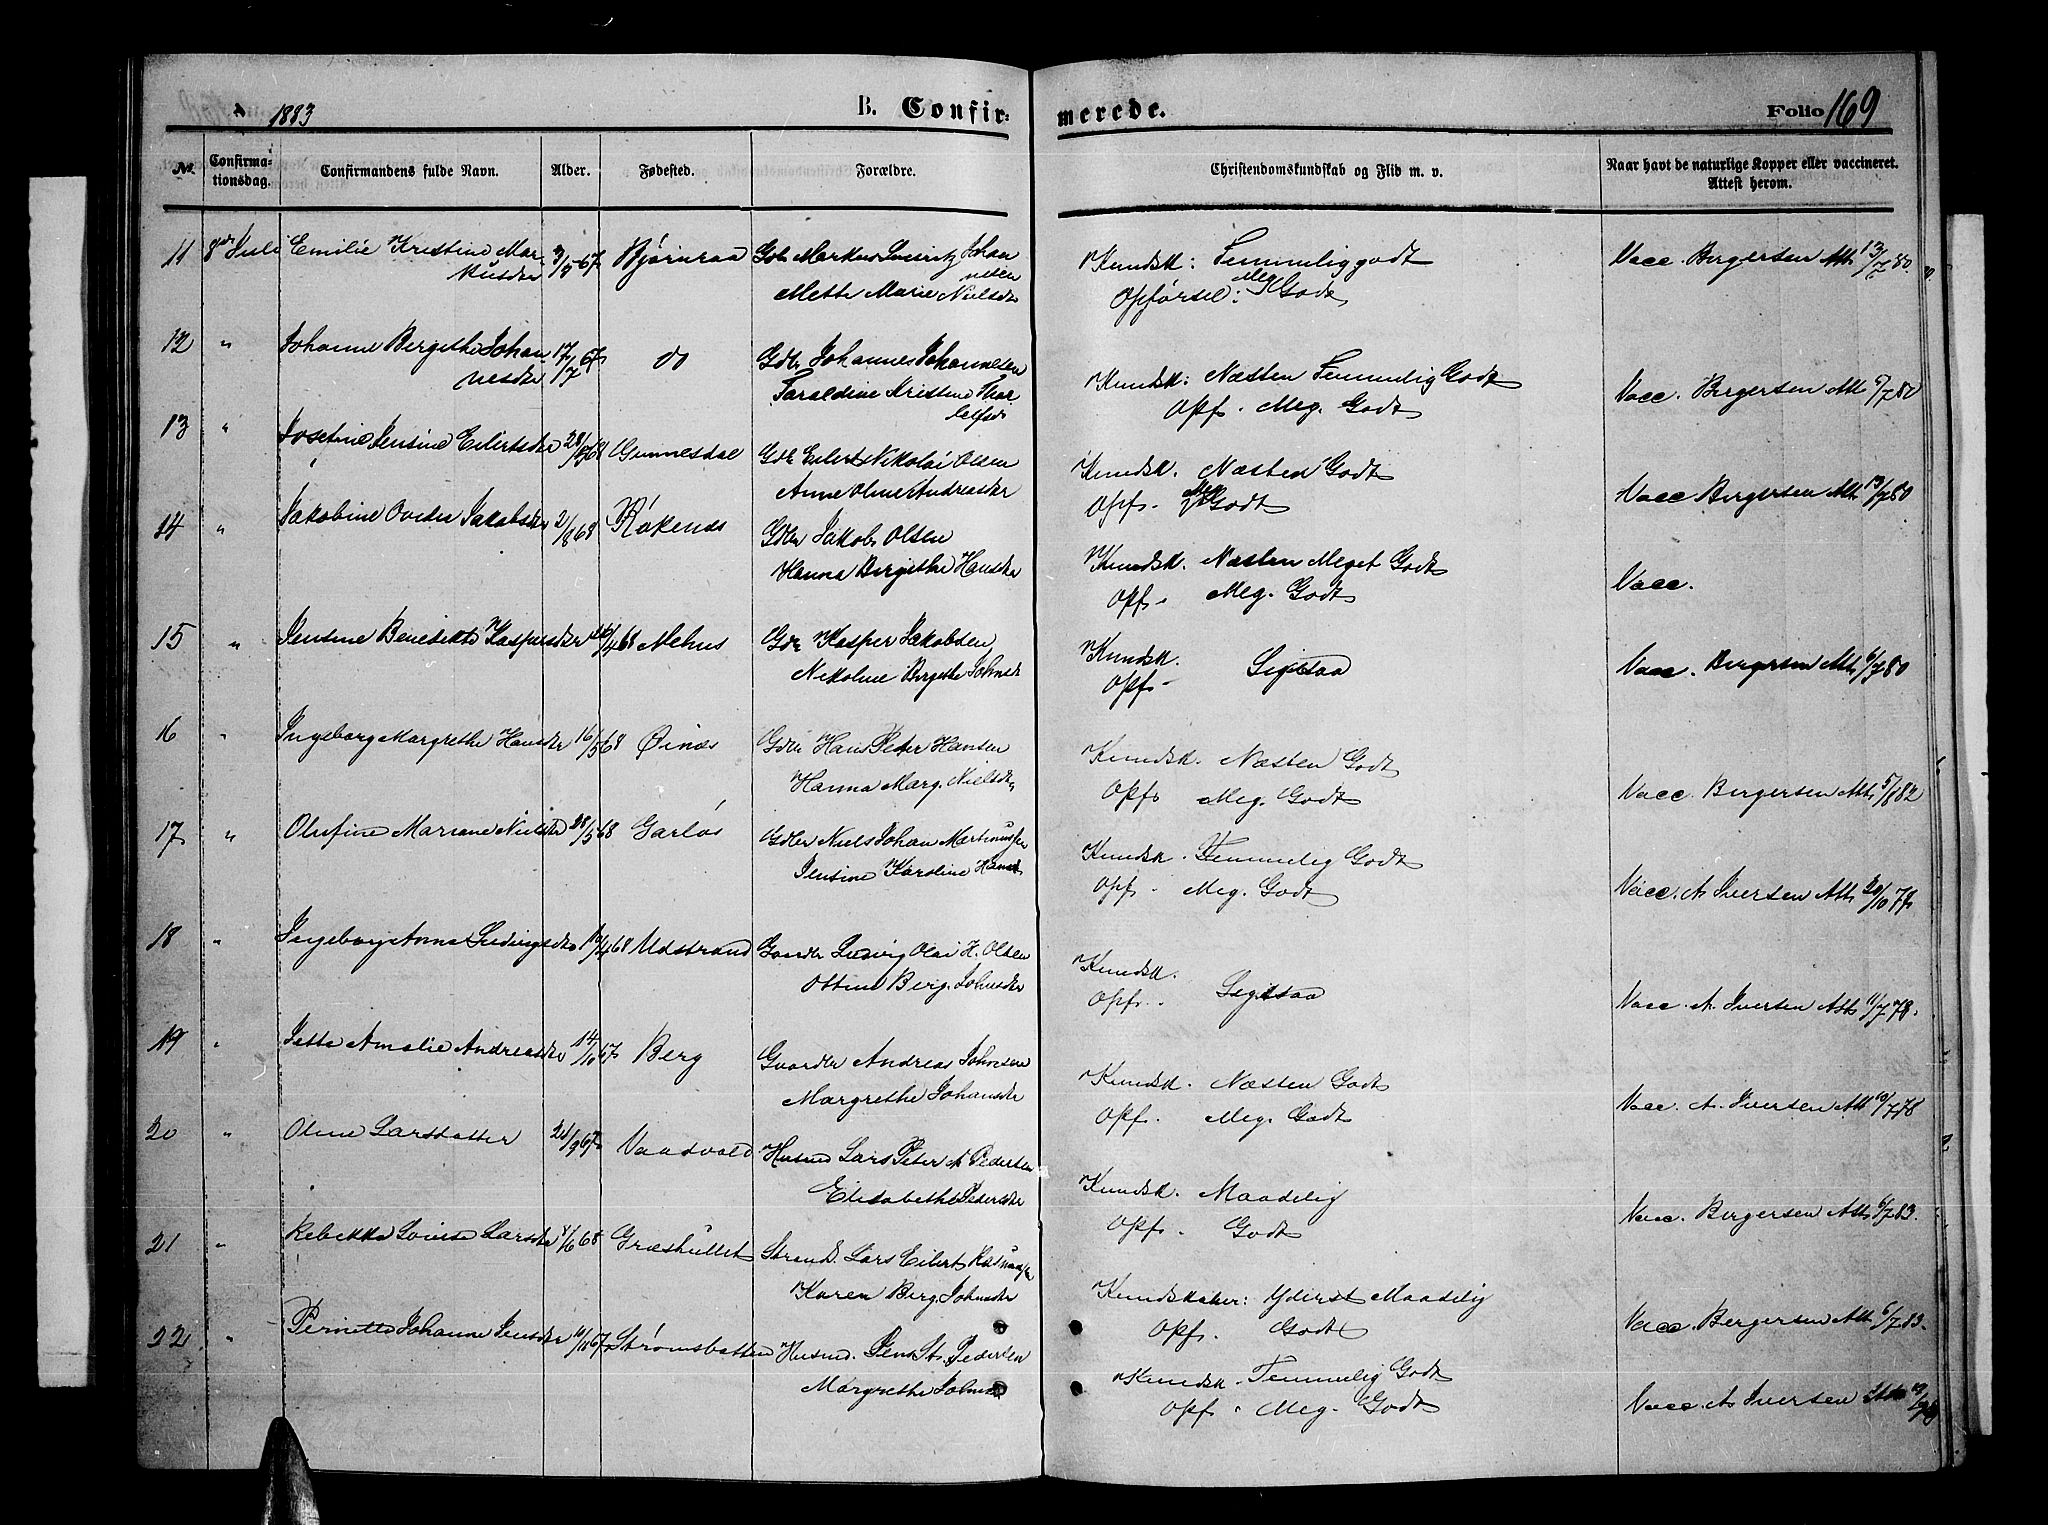 1883
B. Confir-
merede.
Folio 169
No.
Confirma-
tionsdag.
Confirmandens fulde Navn.
Alder.
Fødested.
Forældre.
Christendomskundskab og Flid m. v.
Naar havt de naturlige Kopper eller vaccineret.
Attest herom.
11 8de Juli Emilie Kristine Mar- 3/5 67 Bjørnraa Markus Johan
kusdtr nesen
Mette Marie Nielsdtr
Kundsk: Temmelig godt
Opførsel: Meg Godt
Vacc. Bergersen Att 13/7 80.
12 " Johanne Bergethe Johan 17/7 67 do Gdbr Johannes Johannesen
nesdtr Taraldine Kristine Thor
lefsd
Kundsk: Næsten Temmelig Godt
Opf. Meg. Godt
Vacc. Bergersen Att 5/7 80
13 " Josefine Jensine Eilertsdtr 28/ 68 Gunnesdal Gdbr Eilert Nikolai Olsen
Anne Andreasdtr
Kundsk. Næsten Godt
Opf. Meg Godt
Vacc Bergersen Att 13/7 80
14 " Jakobine Ovedia Jakobsdtr 2/8 68 Kokenes Gdbr Jakob Olsen
Hanna Bergethe Hansdtr
Kundsk. Næsten Meget Godt
Opf. Meg. Godt
Vacc.
15 " Jensine Benedikte Kaspersdtr 26/4 68 Melhus Gdbr Kasper Jakobsen
Nikoline Bergethe Johnsdr
Kundsk.
Opf. Ligesaa
Vacc. Bergersen Att 6/7 80
16 " Ingeborg Margrethe Hansdtr 16/5 68 Øinæs Gdbr Hans Peter Hansen
Hanna Marg. Nielsdtr
Kundsk. Næsten Godt
Opf Meg. Godt
Vacc. Bergersen Att 5/8 82
17 " Olufine Mariane Nielsdtr 28/5 68 Garløs Gdbr Niels Johan Martinussen
Jensine Karoline Hansd
Kundsk. Temmelig Godt
Opf. Meg. Godt
Vacc. A. Iversen Att 20/10 77
18 " Ingeborg Anna Ludvigsdtr 10/4 68 Udstrand Gaardbr Ludvig Olai H. Olsen
Ottine Berg. Johnsdtr
Kundsk.
Opf. Ligesaa
Vacc. A. Iversen Att 11/7 78.
19 " Jette Amalie Andreasdtr 14/10 67 Berg Gaardbr Andreas Johnsen
Margrethe Johansdtr
Kundsk. Næsten Godt
Opf. Meg. Godt
Vacc. A. Iversen Att 10/7 78
20 " Oline Larsdatter 21/9 67 Vaadvold Husmd Lars Peter A Pedersen
Elisabeth Pedersdtr
Kundsk. Maadelig
Opf. Godt
Vacc. Bergersen Att 6/7 83.
21 " Rebekka Lovise Larsdtr 4/6 68 Græshullet Strands. Lars Eilert Rasmussen
Karen Berg. Johnsdtr
Kundskaber: Yderst Maadelig
Opf. Godt
Vacc. Bergersen Att 5/7 83.
22 " Pernette Johanne Jensdtr 10/11 67 Strømsbotten Husmd. Jens St. Pedersen
Margrethe Johnsd
Kundsk. Temmelig Godt
Opf. Meg. Godt
Vacc. A. Iversen Att